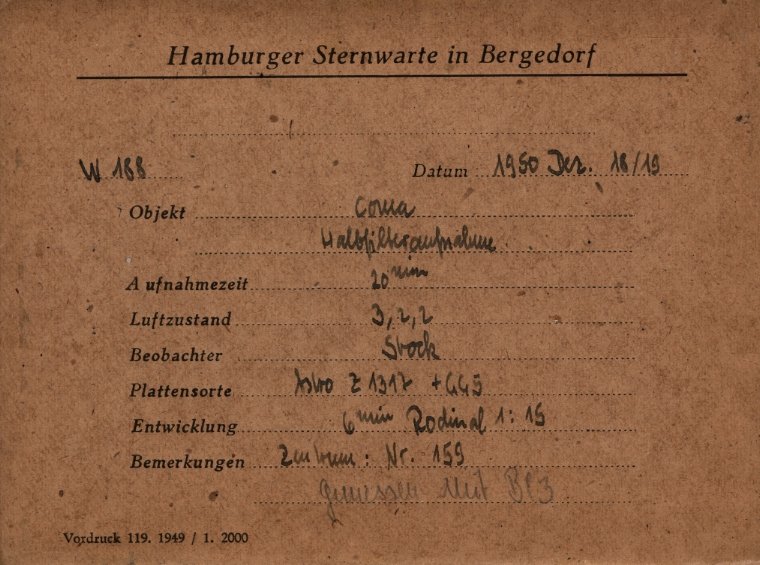 Hamburger Sternwarte in Bergedorf
W 188 Datum 1950 Dez. 18/19
Objekt Coma
Halbfilteraufnahme
Aufnahmezeit 20 min
Luftzustand 3, 2, 2
Beobachter Stock
Plattensorte Astro Z 1317 + GG5
Entwicklung 6 min Rodinal 1:15
Bemerkungen Zentrum: Nr. 159
gemessen mit
Vordruck 119. 1949 / 1. 2000